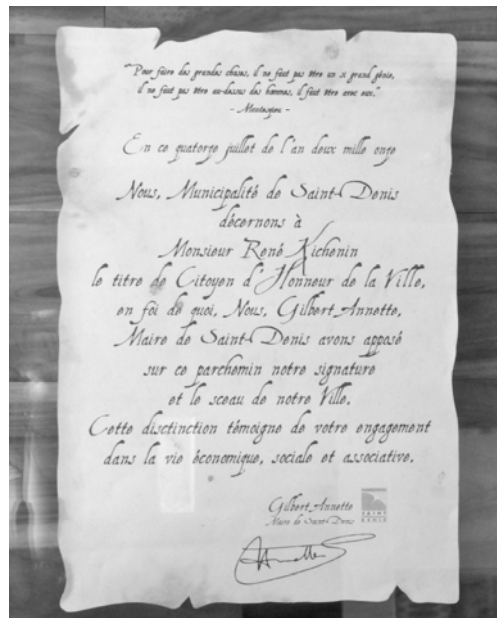 "Pour faire des grandes choses, il ne faut pas être un si grand génie,
il ne faut pas être au-dessus des hommes, il faut être avec eux."
- Montesquieu -
En ce quatorze juillet de l'an deux mille onze
Nous, Municipalité de Saint-Denis
décernons à
Monsieur René Kichenin
le titre de Citoyen d'Honneur de la Ville,
en foi de quoi, Nous, Gilbert Annette,
Maire de Saint-Denis avons apposé
sur ce parchemin notre signature
et le sceau de notre Ville.
Cette distinction témoigne de votre engagement
dans la vie économique, sociale et associative.
Gilbert Annette
Maire de Saint-Denis
SAINT
DENIS